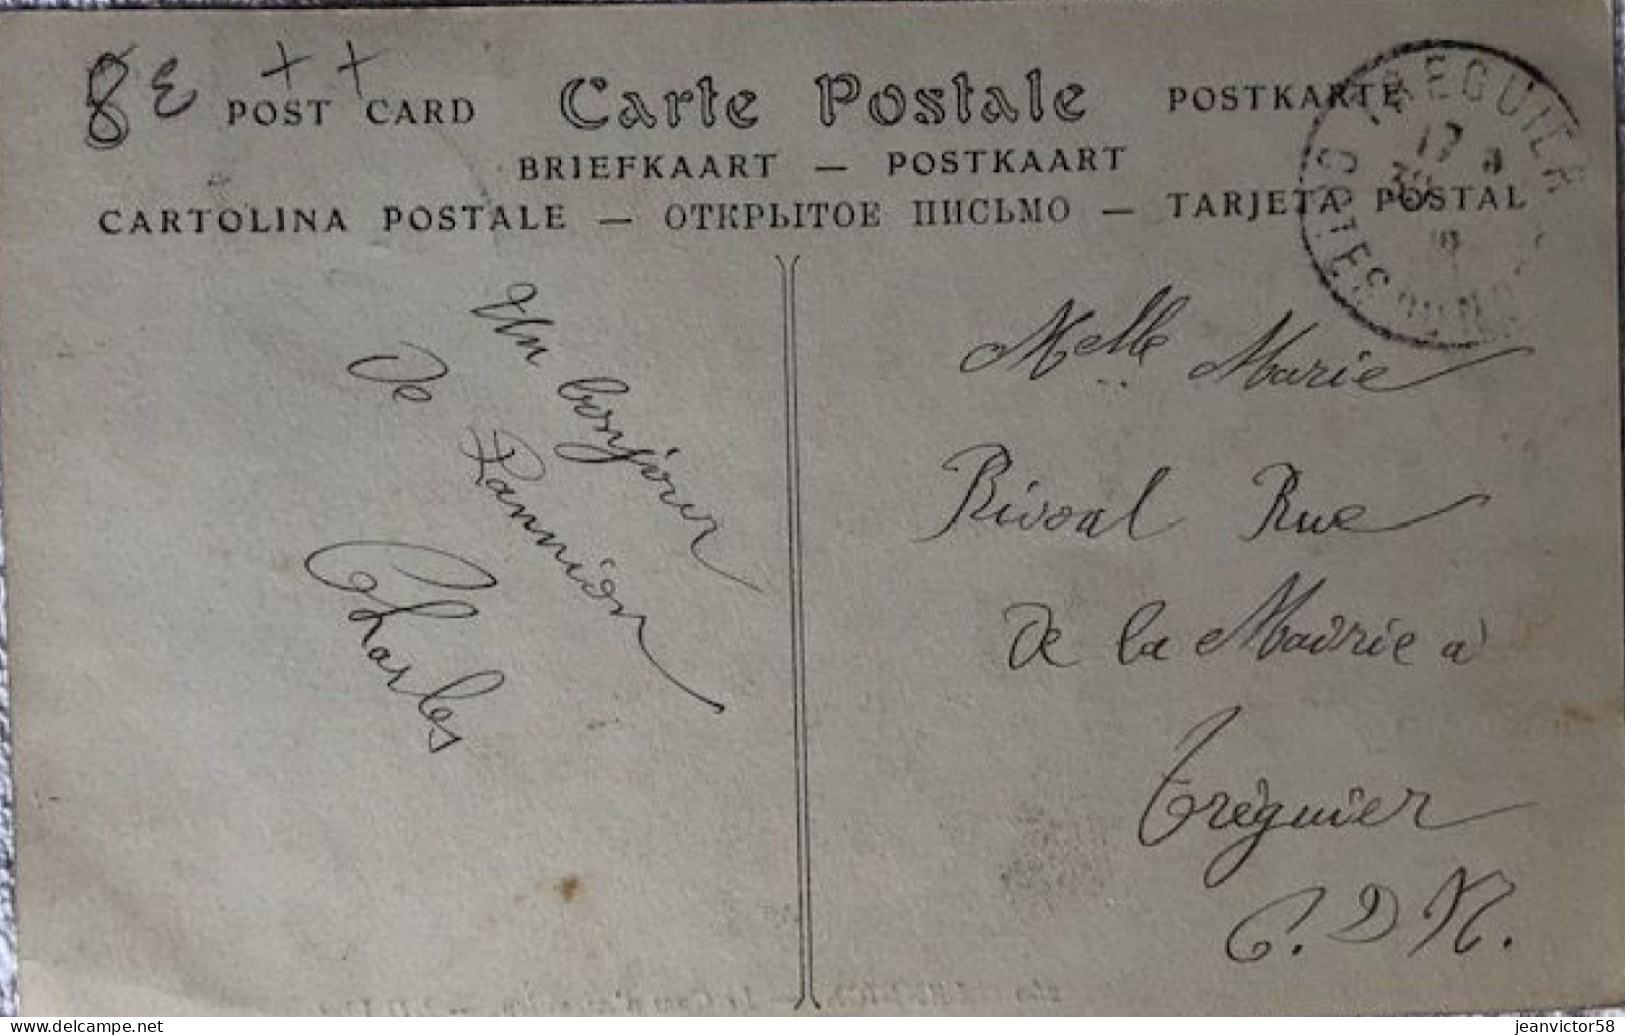 8E ++
POST CARD Carte Postale POSTKARTE
BRIEFKAART — POSTKAART
CARTOLINA POSTALE — ОТКРЫТОЕ ПИСЬМО — TARJETA POSTAL
TREGUIER
COTES DU NORD
17
30
Un bonjour
de Lannion
Charles
Melle Marie
Rivoal Rue
de la Mairie à
Tréguier
C. D N.
delcampe.net
jeanvictor58